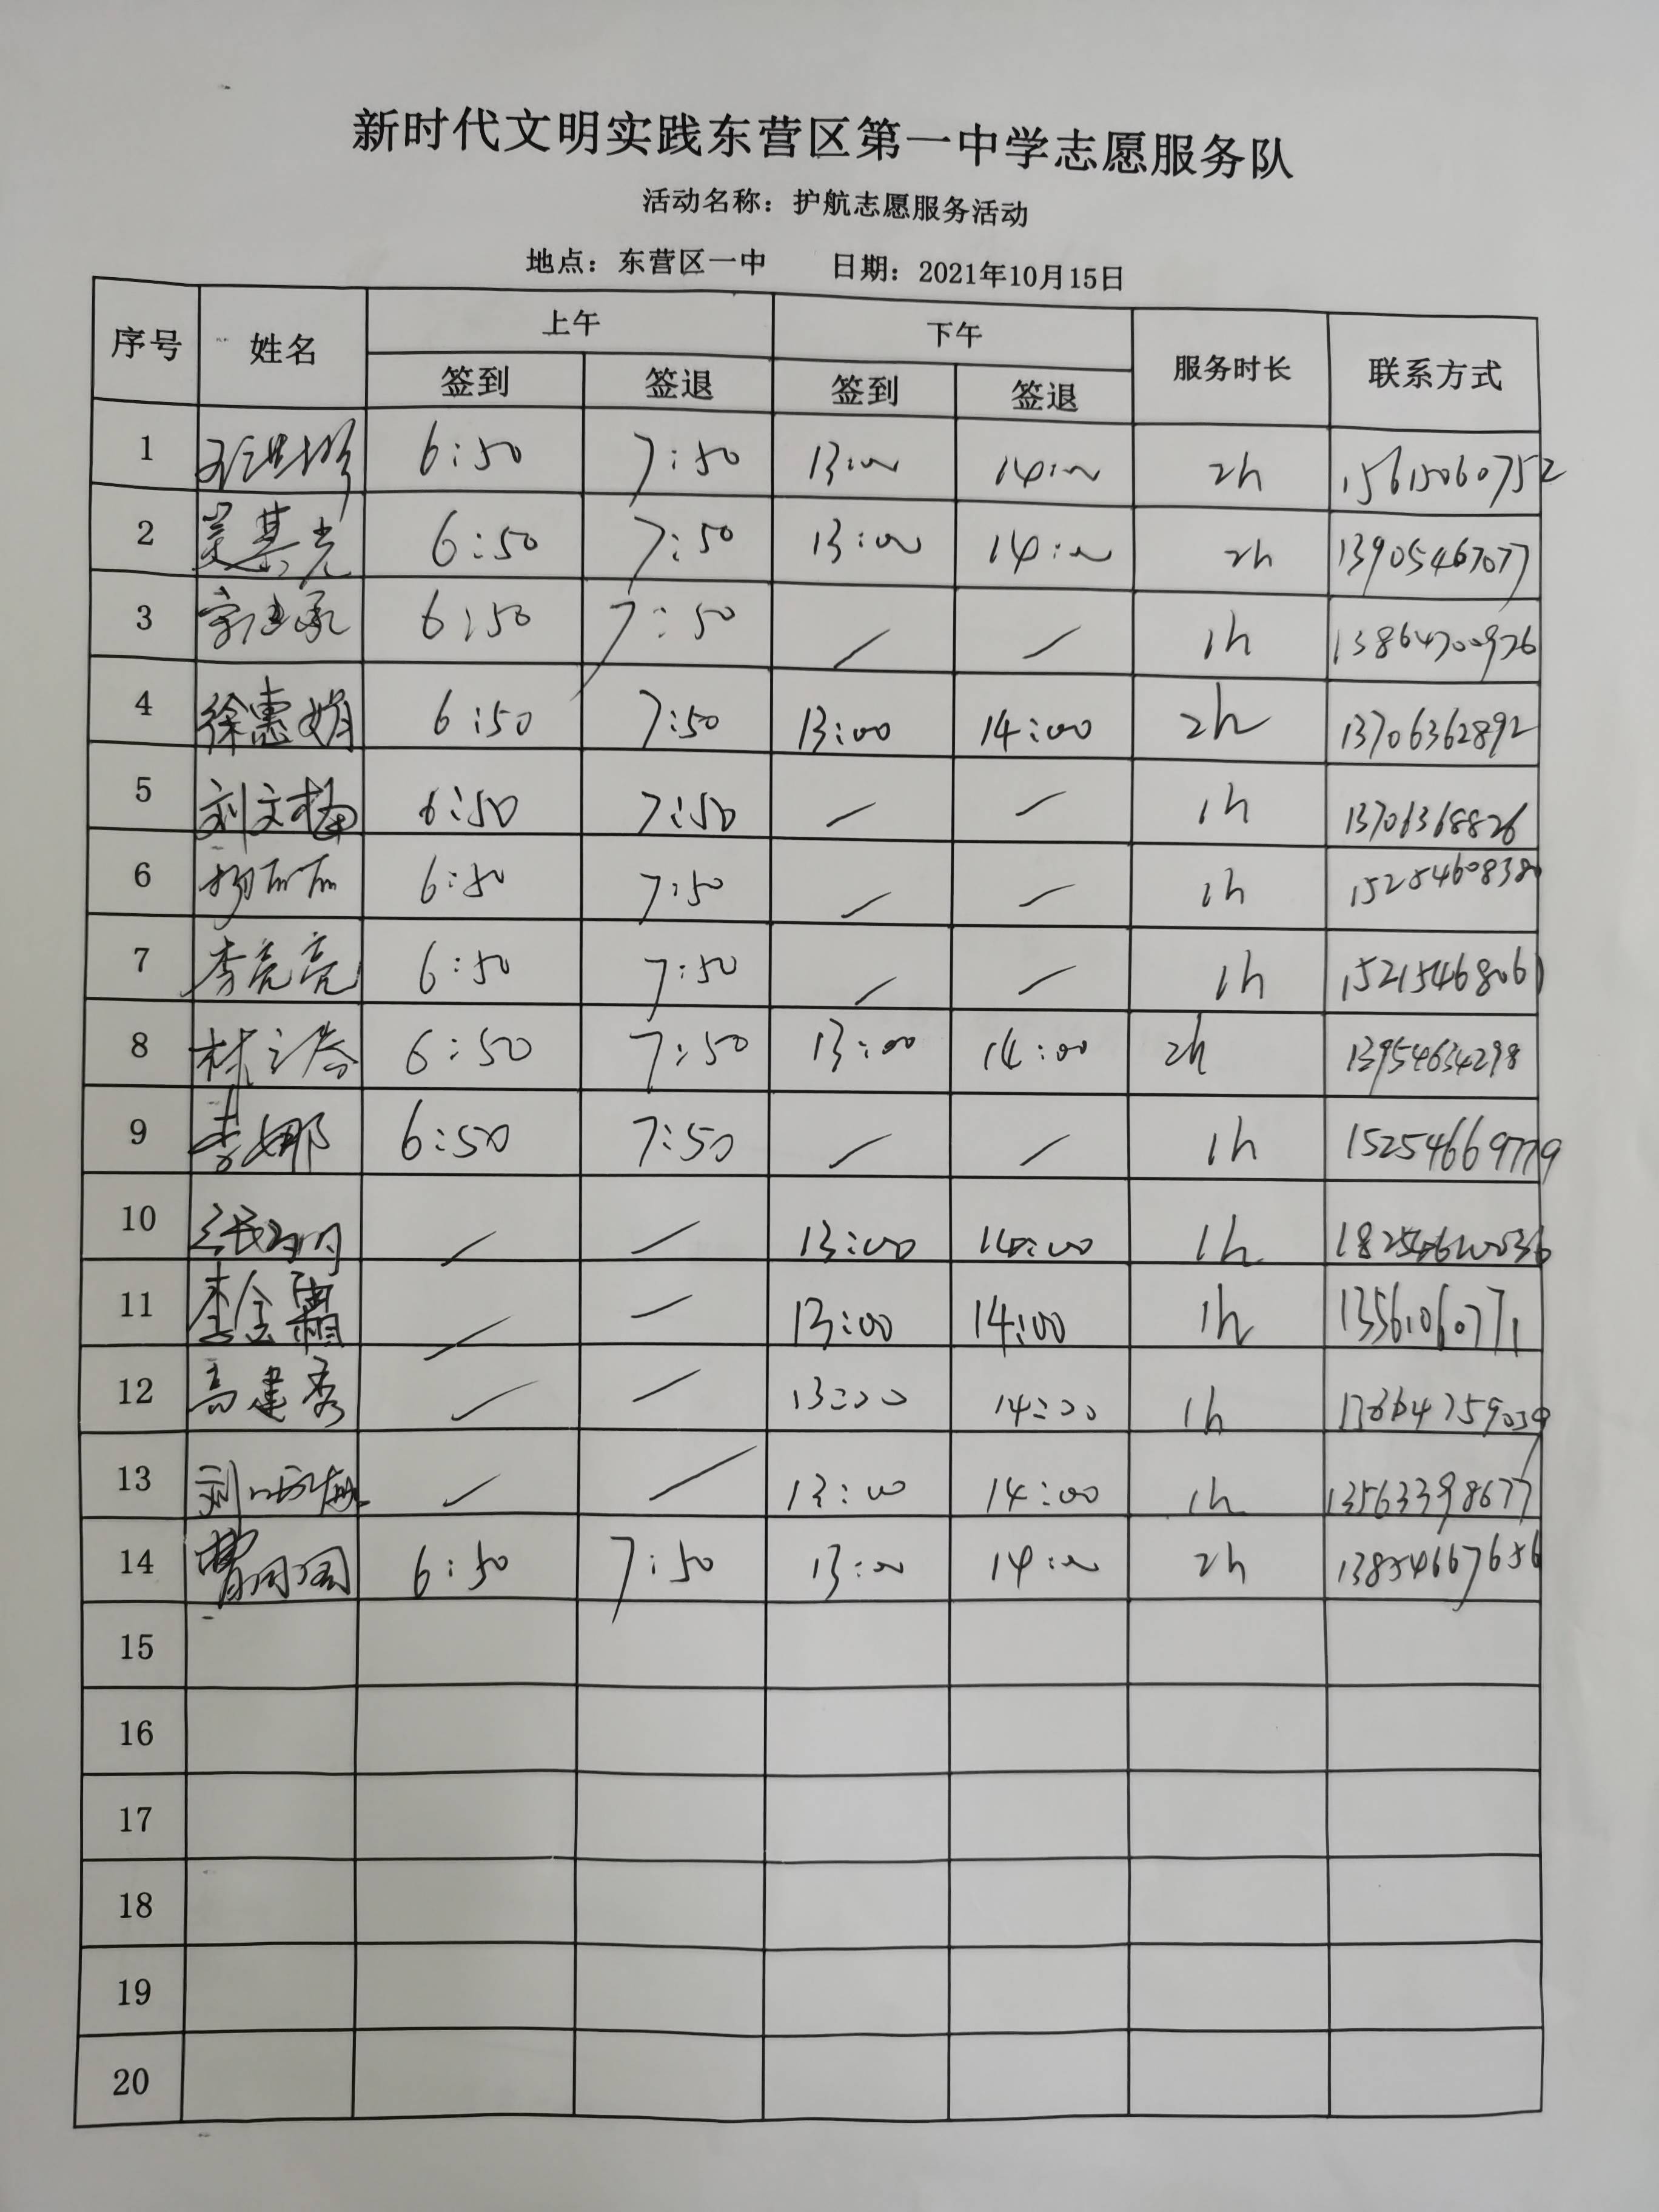 新时代文明实践东营区第一中学志愿服务队
活动名称：护航志愿服务活动
地点：东营区一中 日期：2021年10月15日
序号 姓名 上午 下午 服务时长 联系方式
签到 签退 签到 签退
1 6:50 7:50 13:00 14:00 2h 15615060752
2 吴其光 6:50 7:50 13:00 14:00 2h 13905467077
3 6:50 7:50 / / 1h 13864700976
4 徐惠娟 6:50 7:50 13:00 14:00 2h 13706362892
5 刘文梅 6:50 7:50 / / 1h 13706368826
6 杨丽丽 6:50 7:50 / / 1h 15254608380
7 李亮亮 6:50 7:50 / / 1h 15215468061
8 6:50 7:50 13:00 14:00 2h 13954634298
9 李娜 6:50 7:50 / / 1h 15254669779
10 / / 13:00 14:00 1h
11 李金霜 / / 13:00 14:00 1h 13561060771
12 高建秀 / / 13:00 14:00 1h
13 / / 13:00 14:00 1h 13563398677
14 6:50 7:50 13:00 14:00 2h 13854667656
15
16
17
18
19
20